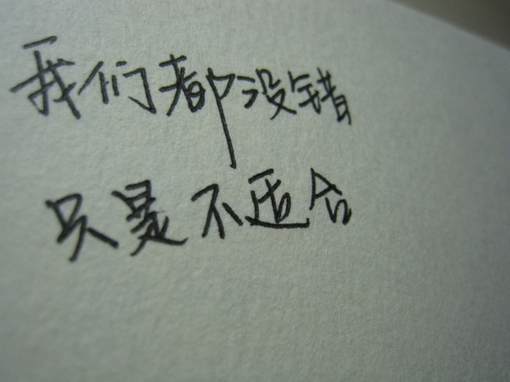 我们都没错
只是不适合